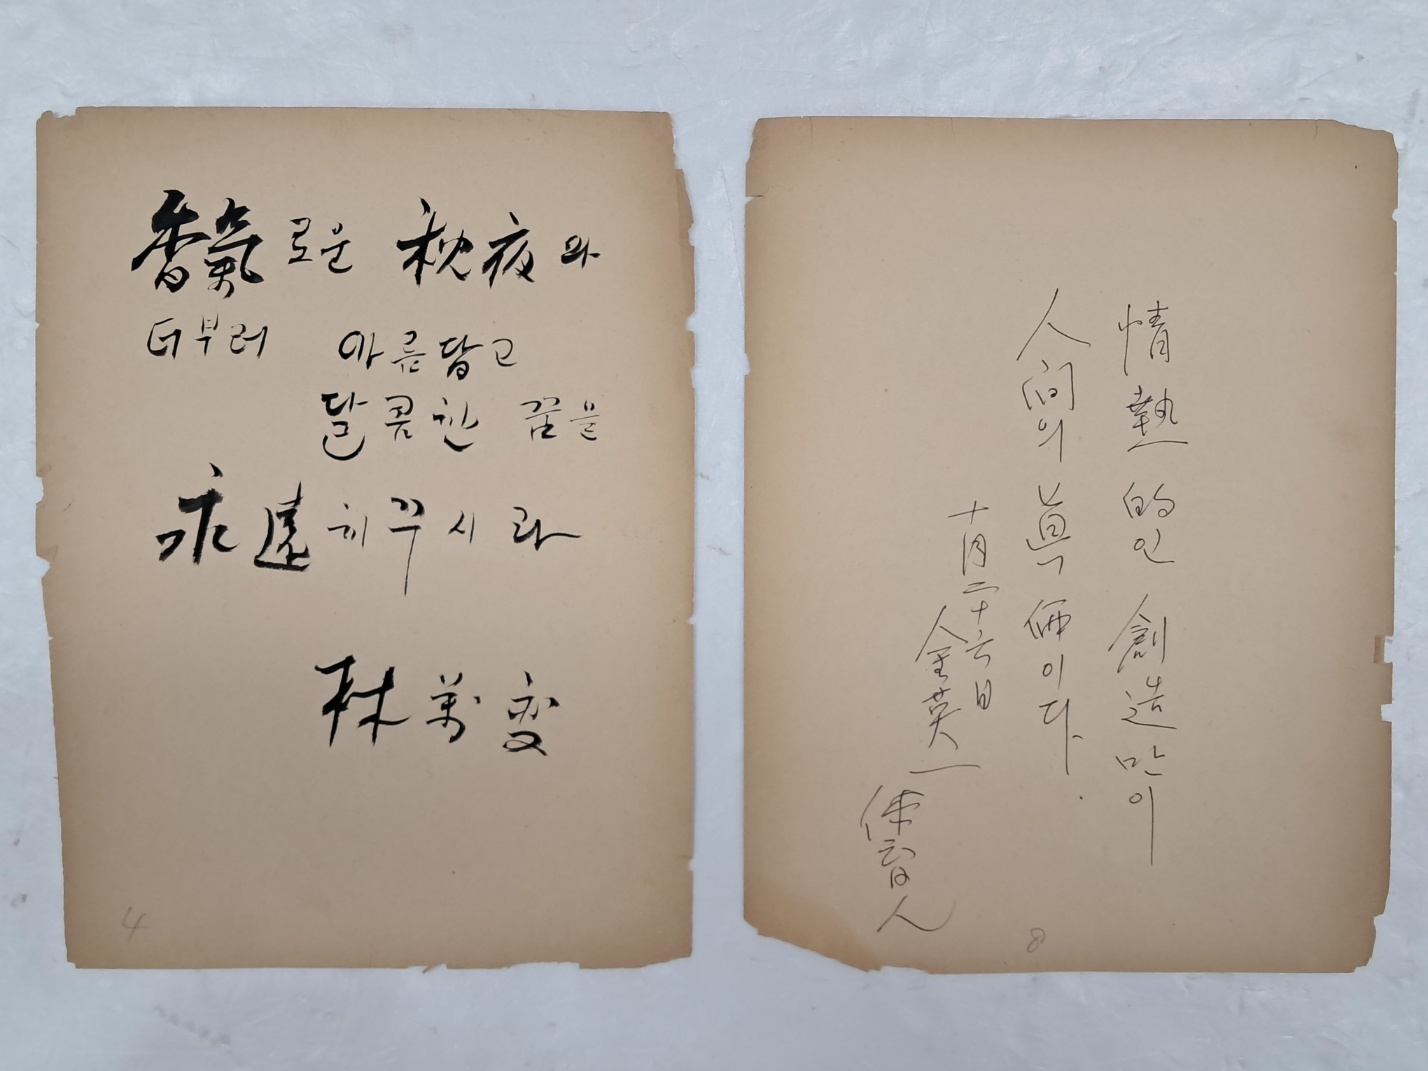 香氣로운 秋夜와
더부러 아름답고
달콤한 꿈을
永遠히 꾸시라
林萬燮
4
情熱的인 創造만이
人间의 眞價이다.
十月二十六日
金英一
8